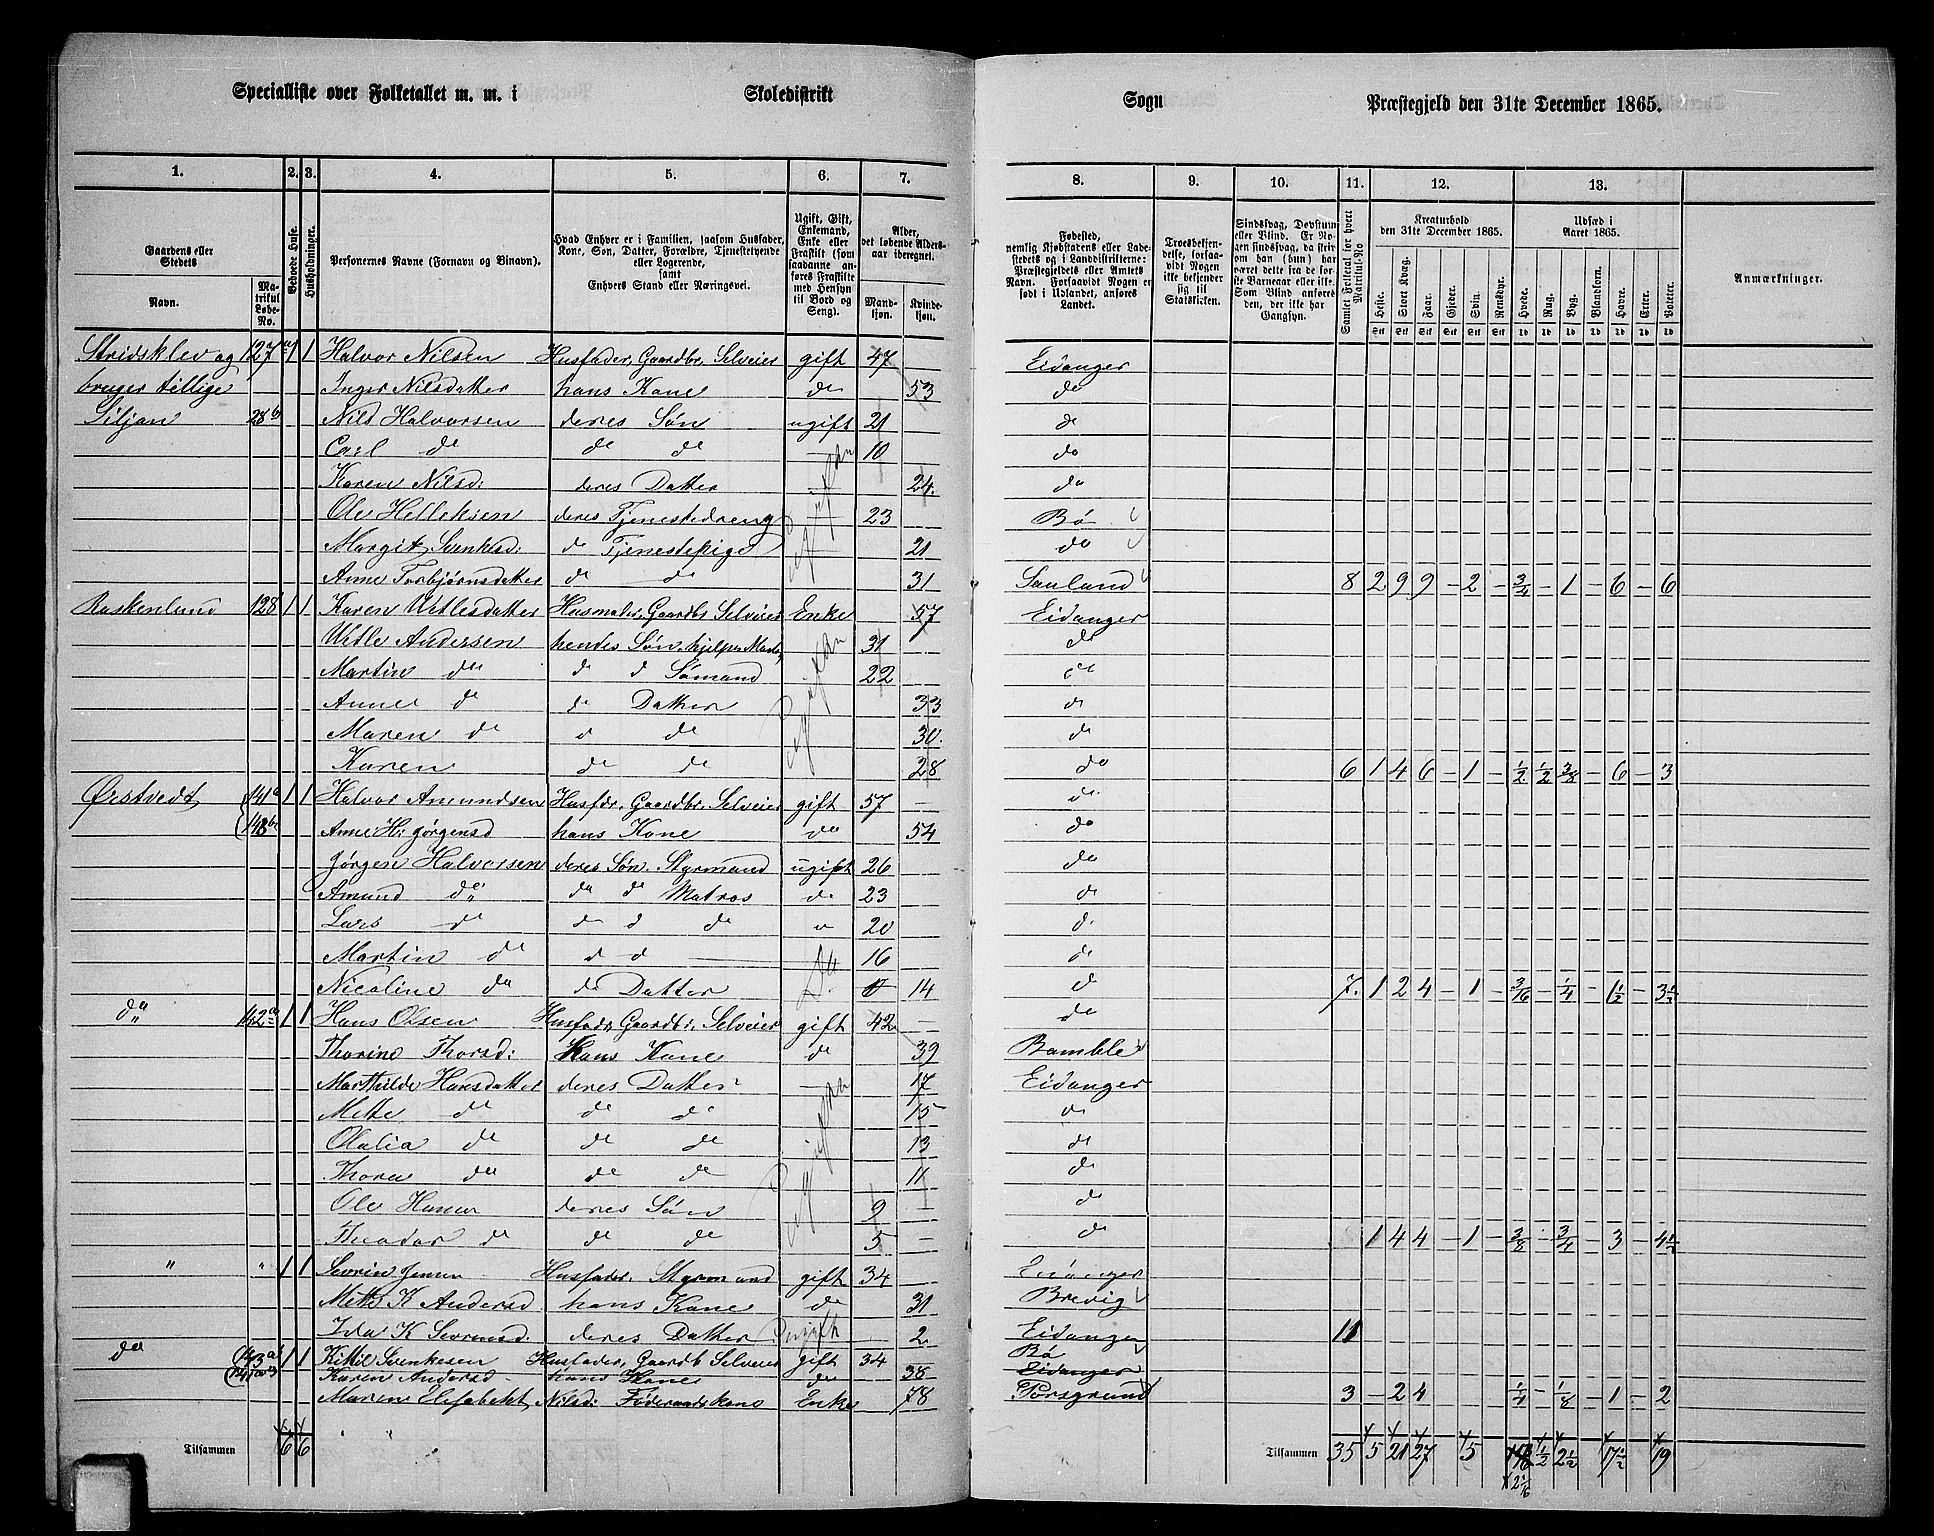 Specialliste over Folketallet m. m. i Skoledistrikt Sogn Præstegjeld den 31te December 1865.
1. 2. 3. 4. 5. 6. 7. 8. 9. 10. 11. 12. 13.
Gaardens eller Stedets
Navn.
Matrikul Løbe-No.
Beboede Huse.
Husholdninger.
Personernes Navne (Fornavn og Binavn).
Hvad Enhver er i Familien, saasom Husfader, Kone, Søn, Datter, Forældre, Tjenestetyende eller Logerende, samt Enhvers Stand eller Næringsvei.
Ugift, Gift, Enkemand, Enke eller Fraskilt (som saadanne anføres Fraskilte med Hensyn til Bord og Seng).
Alder, det løbende Aldersaar iberegnet.
Mandkjøn. Kvindekjøn.
Fødested, nemlig Kjøbstadens eller Ladestedets og i Landdistrikterne: Præstegjeldets eller Amtets Navn. Forsaavidt Nogen er født i Udlandet, anføres Landet.
Troesbekjendelse, forsaavidt Nogen ikke bekjender sig til Statskirken.
Sindssvag, Døvstum eller Blind. Er Nogen sindssvag, da skrives om han (hun) har været dette fra de første Barneaar eller ikke. Som Blind anføres den, der ikke har Gangsyn.
Samlet Folketal for hvert Matrikul-No
Kreaturhold den 31te December 1865.
Heste. Stort Kvæg. Faar. Gjeder. Svin. Rensdyr.
Udsæd i Aaret 1865.
Hvede. Rug. Byg. Blandkorn. Havre. Erter. Poteter.
Anmærkninger.
Stridsklev og 127 1 1 Halvor Nilsen Husfader, Gaardbr, Selveier gift 47 Eidanger
bruger tillige Inger Nilsdatter hans Kone do 53 do
Siljan 28b Nils Halvorsen deres Søn ugift 21 do
Carl do do do 10 do
Karen Nilsd: deres Datter 24 do
Ole Helleksen deres Tjenestedreng 23 Bø
Margit Svenksd: do Tjenestepige 21 do
Anne Torbjørnsdatter do do 31 Sauland 8 2 9 9 – 2 – 3/4 – 1 – 6 – 6
128 1 1 Karen Wetlesdatter Husmoder, Gaardbr Selveier Enke 57 Eidanger
Wetle Andersen hendes Søn, 31 do
Martin do d d Sømand 22 do
Anne do do Datter 33 do
Maren do d do 30 do
Karen do do 28 do 6 1 4 6 – 1 – 1/2 1/2 3/8 – 6 – 3
Ørstvedt 141a 1 1 Halvor Amundsen Husfdr, Gaardbr, Selveier gift 57 – do
148b Anne H: Jørgensd hans Kone do 54 do
Jørgen Halvorsen deres Søn Styrmand ugift 26 do
Amund do do d Matros do 23 do
Lars do do d do 20 d
Martin do d d 16 do
Nicoline do do Datter Do 14 do 7. 1 2 4 – 1 – 3/16 – 1/4 – 1 1/2 – 3 1/2
do 142a 1 1 Hans Olsen Husfader, Gaardbr, Selveier gift 42 – do
Thorine Thorsd: Hans Kone do 39 Bamble
Marthilde Hansdatter deres Datter 17 Eidanger
Mette do do do 15 do
Olalia do do do 13 do
Thora do do do 11 do
Ole Hansen deres Søn 9 do
Theodor do do do 5 – do 1 4 4 – 1 – 3/8 – 3/4 – 3 – 4 1/2
" " 1 1 Sevrin Jensen Husfader Styrmand gift 34 Eidanger
Mette K Andersd. hans Kone do 31 Brevig
Ida K Sevrinsd. deres Datter ugift 2 Eidanger 11
do 143a 1 1 Kittil Svenkesen Husfader, Gaardb Selveier gift 34 Bø
Karen Andersd. hans Kone do 38 Eidanger
Maren Elisabeth Nilsd: Føderaadskone Enke 78 Porsgrund 3 – 2 4 1/4 – 1/8 – 1 – 2
Tilsammen 6 6 Tilsammen 35 5 21 27 5 1/2 2 1/2 17 1/2 19
2 1/16